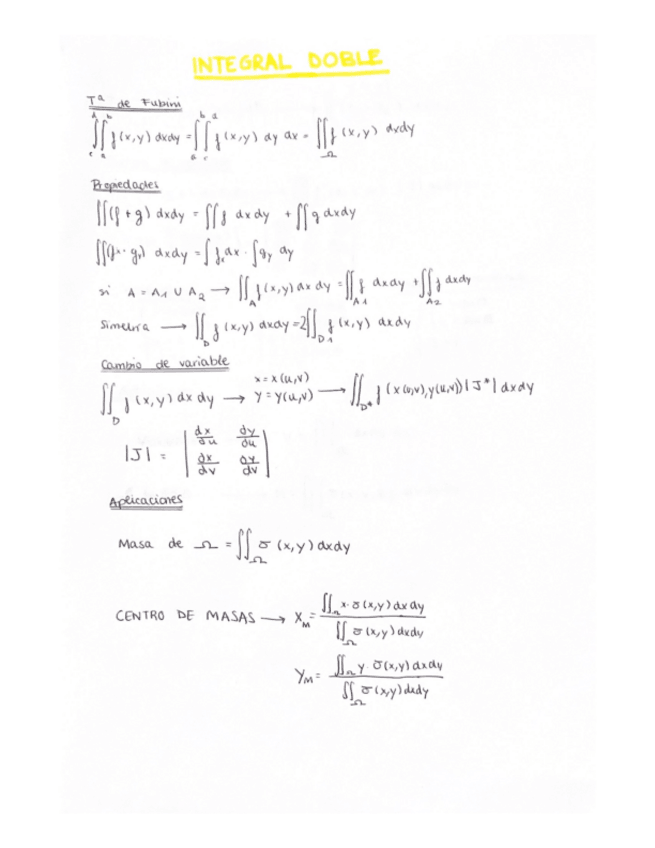 INTEGRAL DOBLE
Tª de Fubini
∫∫ f(x,y) dxdy = ∫∫ f(x,y) dy dx = ∬_Ω f(x,y) dxdy
Propiedades
∬(f + g) dxdy = ∬f dxdy + ∬g dxdy
∬(fx · gy) dxdy = ∫fx dx · ∫gy dy
si A = A1 ∪ A2 → ∬_A f(x,y) dx dy = ∬_A1 f dxdy + ∬_A2 f dxdy
Simetria → ∬_D f(x,y) dxdy = 2∬_D1 f(x,y) dxdy
Cambio de variable
∬_D f(x,y) dx dy → x = x(u,v) y = y(u,v) → ∬_D* f(x(u,v), y(u,v)) |J*| dxdy
|J| = | dx/du dy/du |
| dx/dv dy/dv |
Aplicaciones
Masa de Ω = ∬_Ω σ(x,y) dxdy
CENTRO DE MASAS → X_M = ∬_Ω x·σ(x,y) dx dy / ∬_Ω σ(x,y) dxdy
Y_M = ∬_Ω y·σ(x,y) dxdy / ∬_Ω σ(x,y) dxdy